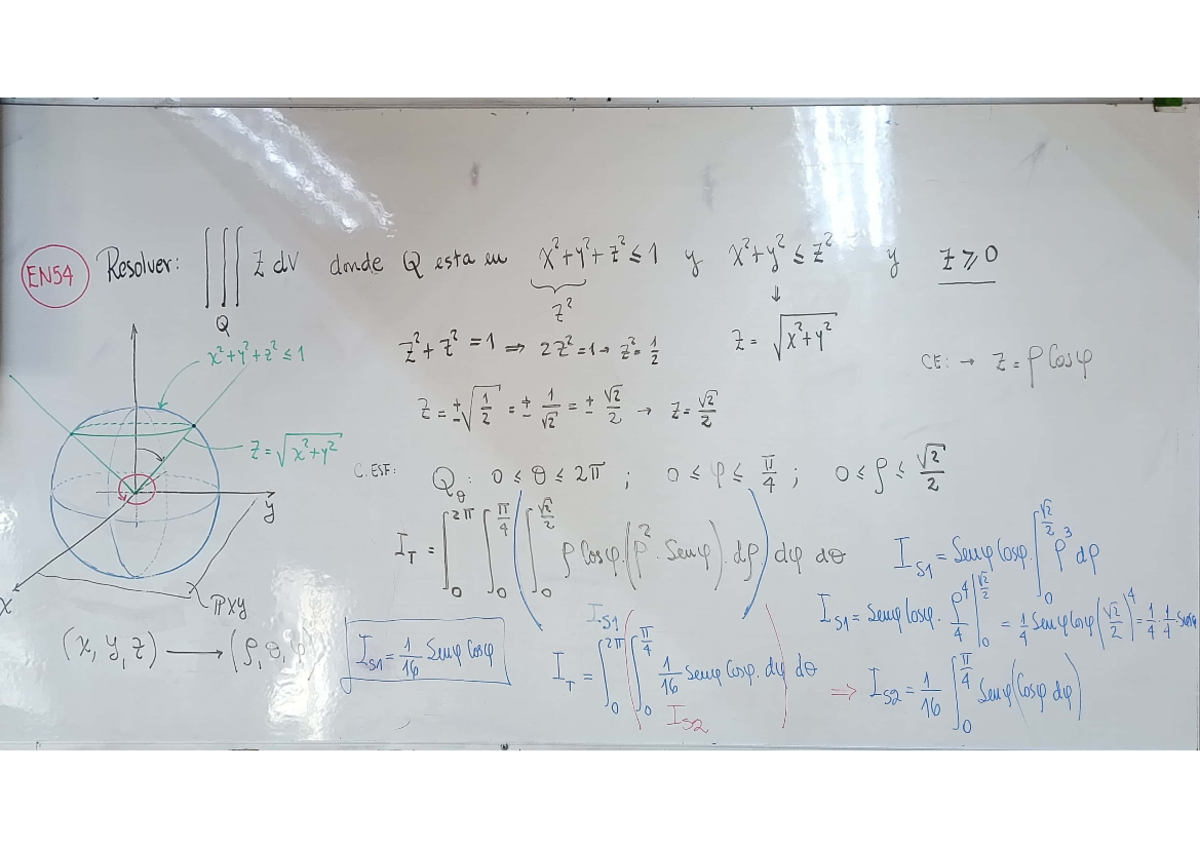 EN54 Resolver: ∭_Q z dv donde Q esta en x²+y²+z² ≤ 1 y x²+y² ≤ z² y z ≥ 0
z² ⇓
x²+y²+z² ≤ 1
z²+z² = 1 ⇒ 2z² = 1 → z² = 1/2 z = √(x²+y²)
CE: → z = ρ Cosφ
z = ±√(1/2) = ± 1/√2 = ± √2/2 → z = √2/2
z = √(x²+y²)
C. ESF: Q_θ: 0 ≤ θ ≤ 2π ; 0 ≤ φ ≤ π/4 ; 0 ≤ ρ ≤ √2/2
y
I_T = ∫_0^{2π} ∫_0^{π/4} (∫_0^{√2/2} ρ Cosφ.(ρ². Senφ). dρ) dφ dθ
I_S1
I_S1 = Senφ Cosφ. ∫_0^{√2/2} ρ³ dρ
x
PXY
I_S1 = Senφ Cosφ. ρ⁴/4 |_0^{√2/2} = 1/4 Senφ Cosφ (√2/2)⁴ = 1/4 . 1/4 .
(x, y, z) ⟶ (ρ, θ, φ)
I_S1 = 1/16 Senφ Cosφ
I_T = ∫_0^{2π} (∫_0^{π/4} 1/16 Senφ Cosφ. dφ) dθ
I_S2
⇒ I_S2 = 1/16 ∫_0^{π/4} Senφ (Cosφ dφ)